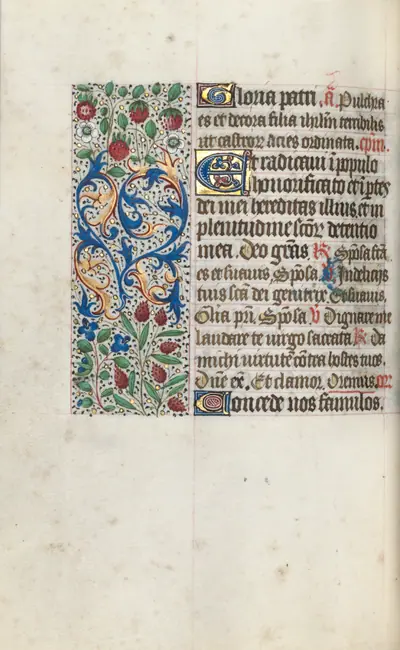 Gloria patri. a. Pulchra
es et decora filia ihrlm terribilis
ut castrorum acies ordinata. cpm.
Et radicaui i populo
honorificato et i ptes
dei mei hereditas illius et in
plenitudine scor detentio
mea. Deo gras R Sposa
es et suauis, Sposa. V In delicijs
tuis sca dei genitrix Et suauis,
Glia pri, Sposa V Dignare me
laudare te uirgo sacrata R Da
michi uirtute cotra hostes tuos.
Dne ex. Et clamor. Oremus. or.
Concede nos famulos.